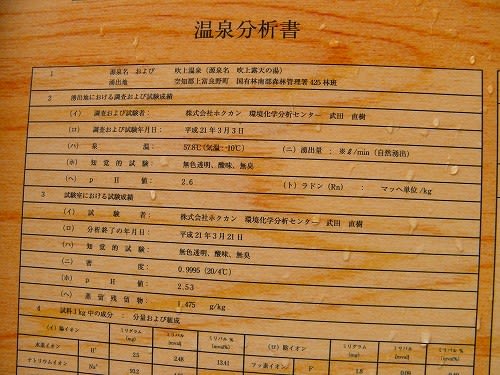 温泉分析書
1 源泉名 および 吹上温泉（源泉名 吹上露天の湯）
湧出地 空知郡上富良野町 国有林南部森林管理署425林班
2 湧出地における調査および試験成績
（イ） 調査および試験者： 株式会社ホクカン 環境化学分析センター 武田 直樹
（ロ） 調査および試験年月日： 平成21年3月3日
（ハ） 泉 温： 57.8℃（気温 -10℃） （ニ） 湧出量： ※ℓ/min（自然湧出）
（ホ） 知覚的試験： 無色透明、酸味、無臭
（ヘ） pH値： 2.6 （ト） ラドン（Rn）： マッヘ単位/kg
3 試験室における試験成績
（イ） 試験者： 株式会社ホクカン 環境化学分析センター 武田 直樹
（ロ） 分析終了の年月日： 平成21年3月21日
（ハ） 知覚的試験： 無色透明、酸味、無臭
（ニ） 密度： 0.9995（20/4℃）
（ホ） pH値： 2.53
（ヘ） 蒸留残留物： 1.475 g/kg
4 試料1kg中の成分： 分量および組成
（イ）陽イオン ミリグラム(mg) ミリバル(mval) ミリバル%(mval%) （ロ）陰イオン ミリグラム(mg) ミリバル(mval) ミリバル%(mval%)
水素イオン H⁺ 2.5 2.48 13.41 フッ素イオン F⁻ 1.8
ナトリウムイオン Na⁺